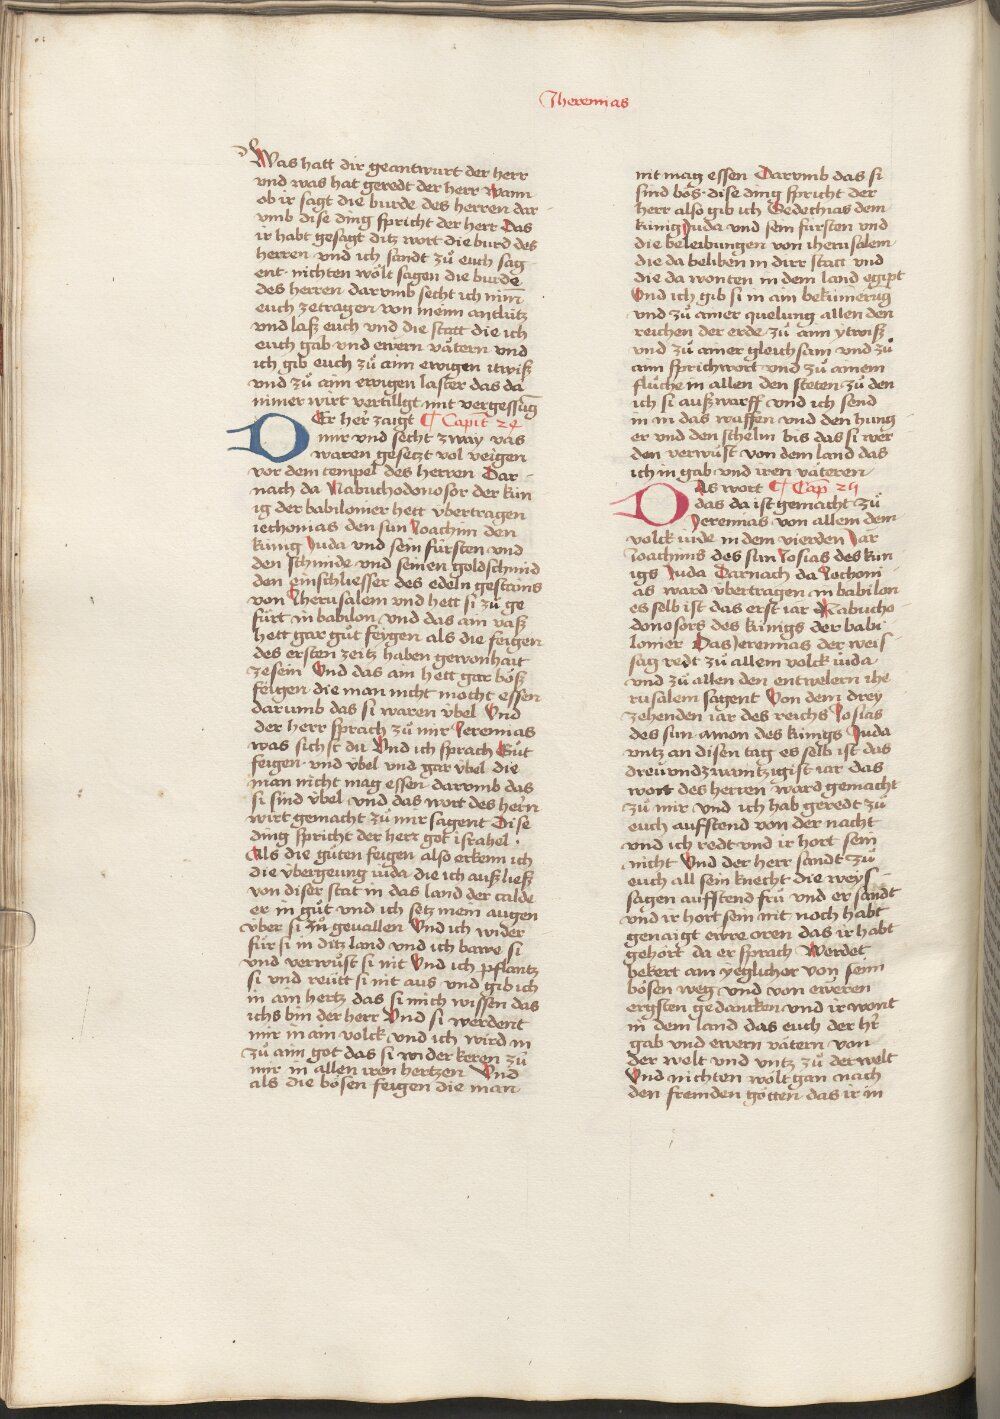 Jheremias
Was hatt dir geantwurt der herr
vnd was hat geredt der herr wann
ob ir sagt die burde des herren dar
vmb dise ding spricht der herr Das
ir habt gesagt ditz wort die burd des
herren vnd ich sandt zů euch sag
ent · nichten wölt sagen die burde
des herren darvmb secht ich nim̄
euch zetragen von meim antlütz
vnd laß euch vnd die statt die ich
euch gab vnd ewern vätern vnd
ich gib euch zů aim ewigen itwiß
vnd zů aim ewigen laster das da
nimer wirt vertillgt mit vergessūg
DEr her zaigt ¶ Capit̄ 24
mir vnd secht zway vas
waren gesetzt vol veigen
vor dem tempel des herren Dar
nach da Nabuchodonosor der kün
ig der babilonier hett vbertragen
iechonias den sun Joachim den
künig Juda vnd sein fürsten vnd
den schmide vnd seinen goldschmid
den einschliesser des edeln gestains
von Jherusalem vnd hett si zů ge
fürt in babilon vnd das ain vaß
hett gar gůt feygen als die feigen
des ersten zeitz haben gewonhait
zesein Vnd das ain hett gar böß
feigen die man nicht mocht essen
darumb das si waren vbel Vnd
der herr sprach zů mir Jeremias
was sichst du Vnd ich sprach Gůt
feigen · vnd vbel vnd gar vbel die
man nicht mag essen darumb das
si sind vbel vnd das wort des herrn
wirt gemacht zů mir sagent Dise
ding spricht der herr got israhel ·
Als die gůten feigen also erkenn ich
die vbergeung iuda die ich außließ
von diser stat in das land der calde
er in gůt vnd ich setz mein augen
vber si zů geuallen Vnd ich wider
für si in ditz land vnd ich bawe si
vnd verwůst si nit Vnd ich pflantz
si vnd reütt si nit aus vnd gib ich
in ain hertz das si mich wissen das
ichs bin der herr Vnd si werdent
mir in ain volck vnd ich wird in
zů aim got das si wider keren zů
mir in allen iren hertzen Vnd
als die bösen feigen die man
nit mag essen Darvmb das si
sind bös · dise ding spricht der
herr also gib ich Sedechias dem
künig Juda vnd sein fürsten vnd
die beleibungen von iherusalem
die da beliben in dirr statt vnd
die da wonten in dem land egipt
Vnd ich gib si in ain bekümerūg
vnd zů ainer quelung allen den
reichen der erde zů aim ytwiß
vnd zů ainer gleichsam vnd zů
aim sprichwort vnd zů ainem
flůche in allen den steten zů den
ich si außwarff vnd ich send
in in das waffen vnd den hung
er vnd den schelm bis das si wer
den verwůst von dem land das
ich in gab vnd iren väteren
DAs wort ¶ Cap̄ 25
das da ist gemacht zů
Jeremias von allem dem
volck iude in dem vierden Jar
Joachims des sun Josias des kün
igs Juda Darnach da Jechoni
as ward vbertragen in babilon
es selb ist das erst iar Nabucho
donosors des künigs der babi
lonier Das Jeremias der weis
sag redt zů allem volck iuda
vnd zů allen den entwelern ihe
rusalem sagent Von dem drey
zehenden iar des reichs Josias
des sun amon des künigs Juda
vntz an disen tag es selb ist das
dreůundzwaintzigist iar das
wort des herren ward gemacht
zů mir vnd ich hab geredt zů
euch aufstend von der nacht
vnd ich redt vnd ir hort sein
nicht Vnd der herr sandt zů
euch all sein knecht die weys
sagen aufstend frů vnd er sandt
vnd ir hort sein nit noch habt
genaigt ewre oren das ir habt
gehört da er sprach Werdet
bekert ain yeglicher von seim
bösen weg vnd von eweren
ergsten gedancken vnd ir wont
in dem land das euch der hr̄
gab vnd ewern vätern von
der welt vnd vntz zů der welt
Vnd nichten wölt gan nach
den fremden götten das ir in